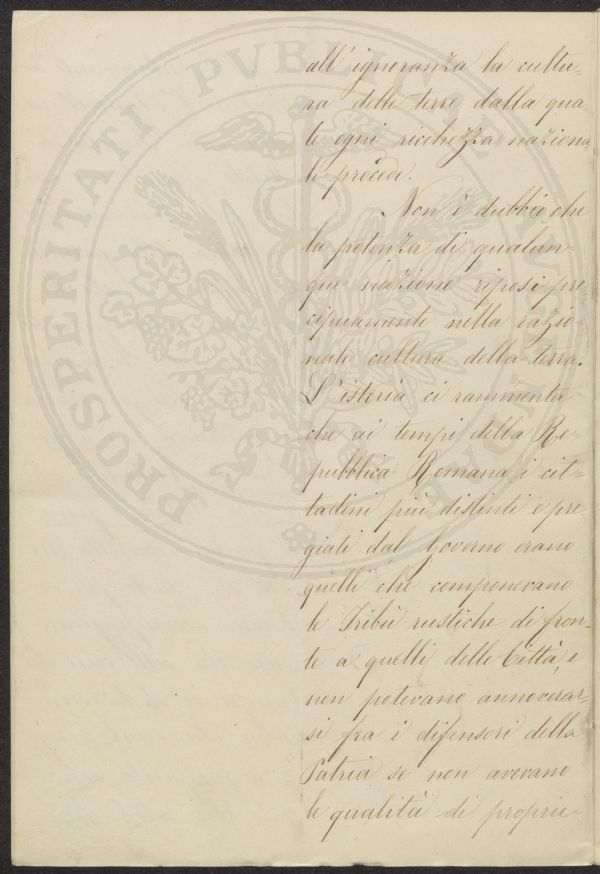 all' ignoranza la cultu-
ra delle terre dalla qua-
le ogni ricchezza naziona-
le procede.
Non è dubbio che
la potenza di qualun-
que nazione riposi pre
cipuamente nella razio-
nale cultura della terra.
L'istoria ci rammenta
che ai tempi della Re-
pubblica Romana i cit-
tadini più distinti e pre-
giati dal Governo erano
quelli che componevano
le Tribù rustiche di fron-
te a quelli delle Città, e
non potevano annoverar-
si fra i difensori della
Patria se non avevano
le qualità di proprie-
PROSPERITATI PVBLICAE